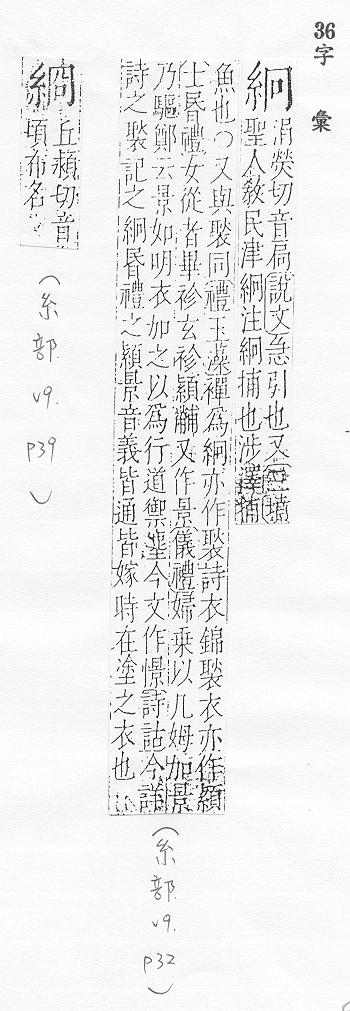 36字 彙
絅 涓熒切音扃說文急引也又三墳
聖人敎民津絅注絅捕也涉澤捕
魚也○又與褧同禮玉藻襌爲絅亦作褧詩衣錦褧衣亦作穎
士昬禮女從者畢袗玄袗穎黼又作景儀禮婦乘以几姆加景
乃驅鄭云景如明衣加之以爲行道禦塵今文作憬詩詁今詳
詩之褧記之絅昬禮之穎景音義皆通皆嫁時在塗之衣也
(糸部 v9. p32)
絅 丘穎切音
頃布名
(糸部 v9. p39)